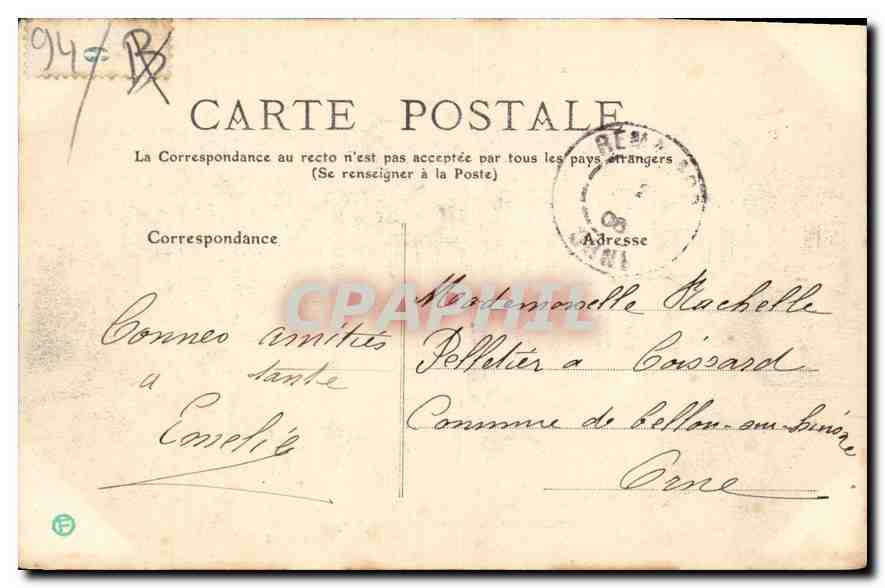 94 B
CARTE POSTALE
La Correspondance au recto n'est pas acceptée par tous les pays étrangers
(Se renseigner à la Poste)
REMALARD
06
ORNE
Correspondance
Adresse
CPAPHIL
Bonnes amitiés
a tante
Emelie
Mademoiselle Rachelle
Pelletier a Boissard
Commune de Bellou-sur-huisne
Orne
F